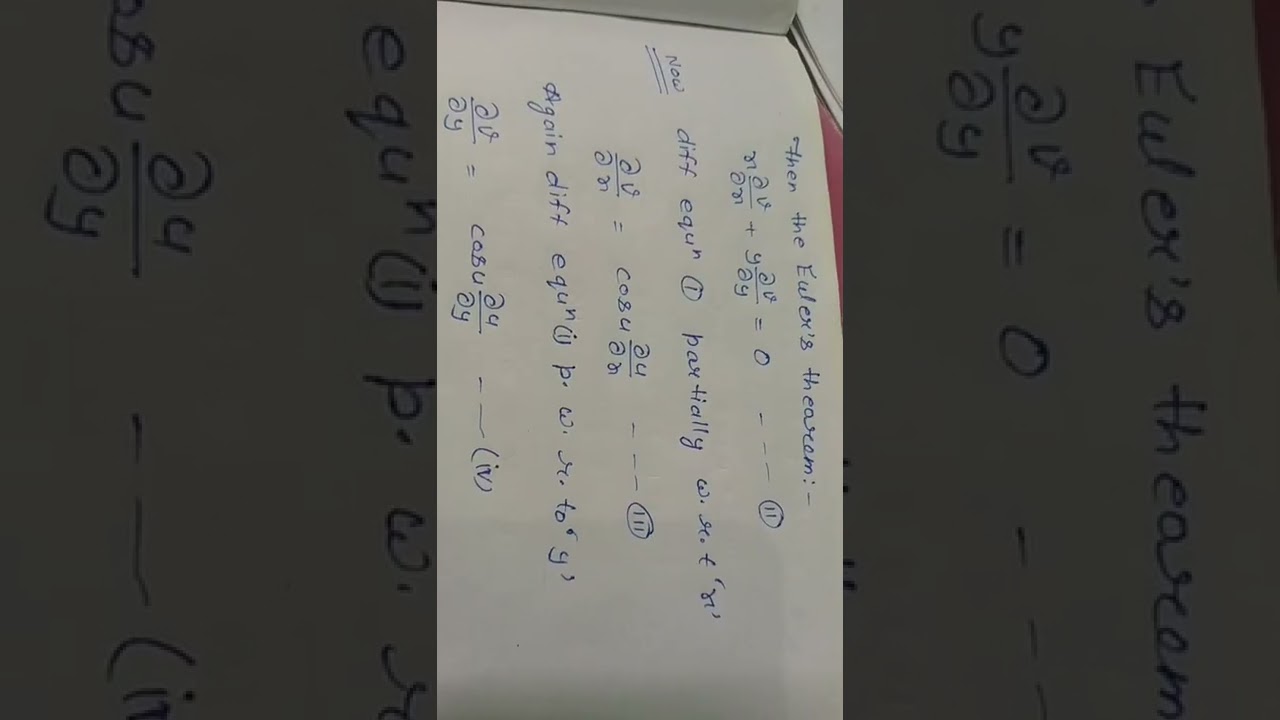 then the Euler's thearem:-
x ∂v/∂x + y ∂v/∂y = 0 - - - (II)
Now diff equⁿ (I) partially w.r.t 'x'
∂v/∂x = cosu ∂u/∂x - - - (III)
Again diff equⁿ (i) p.w.r.to 'y'
∂v/∂y = cosu ∂u/∂y - - - (iv)